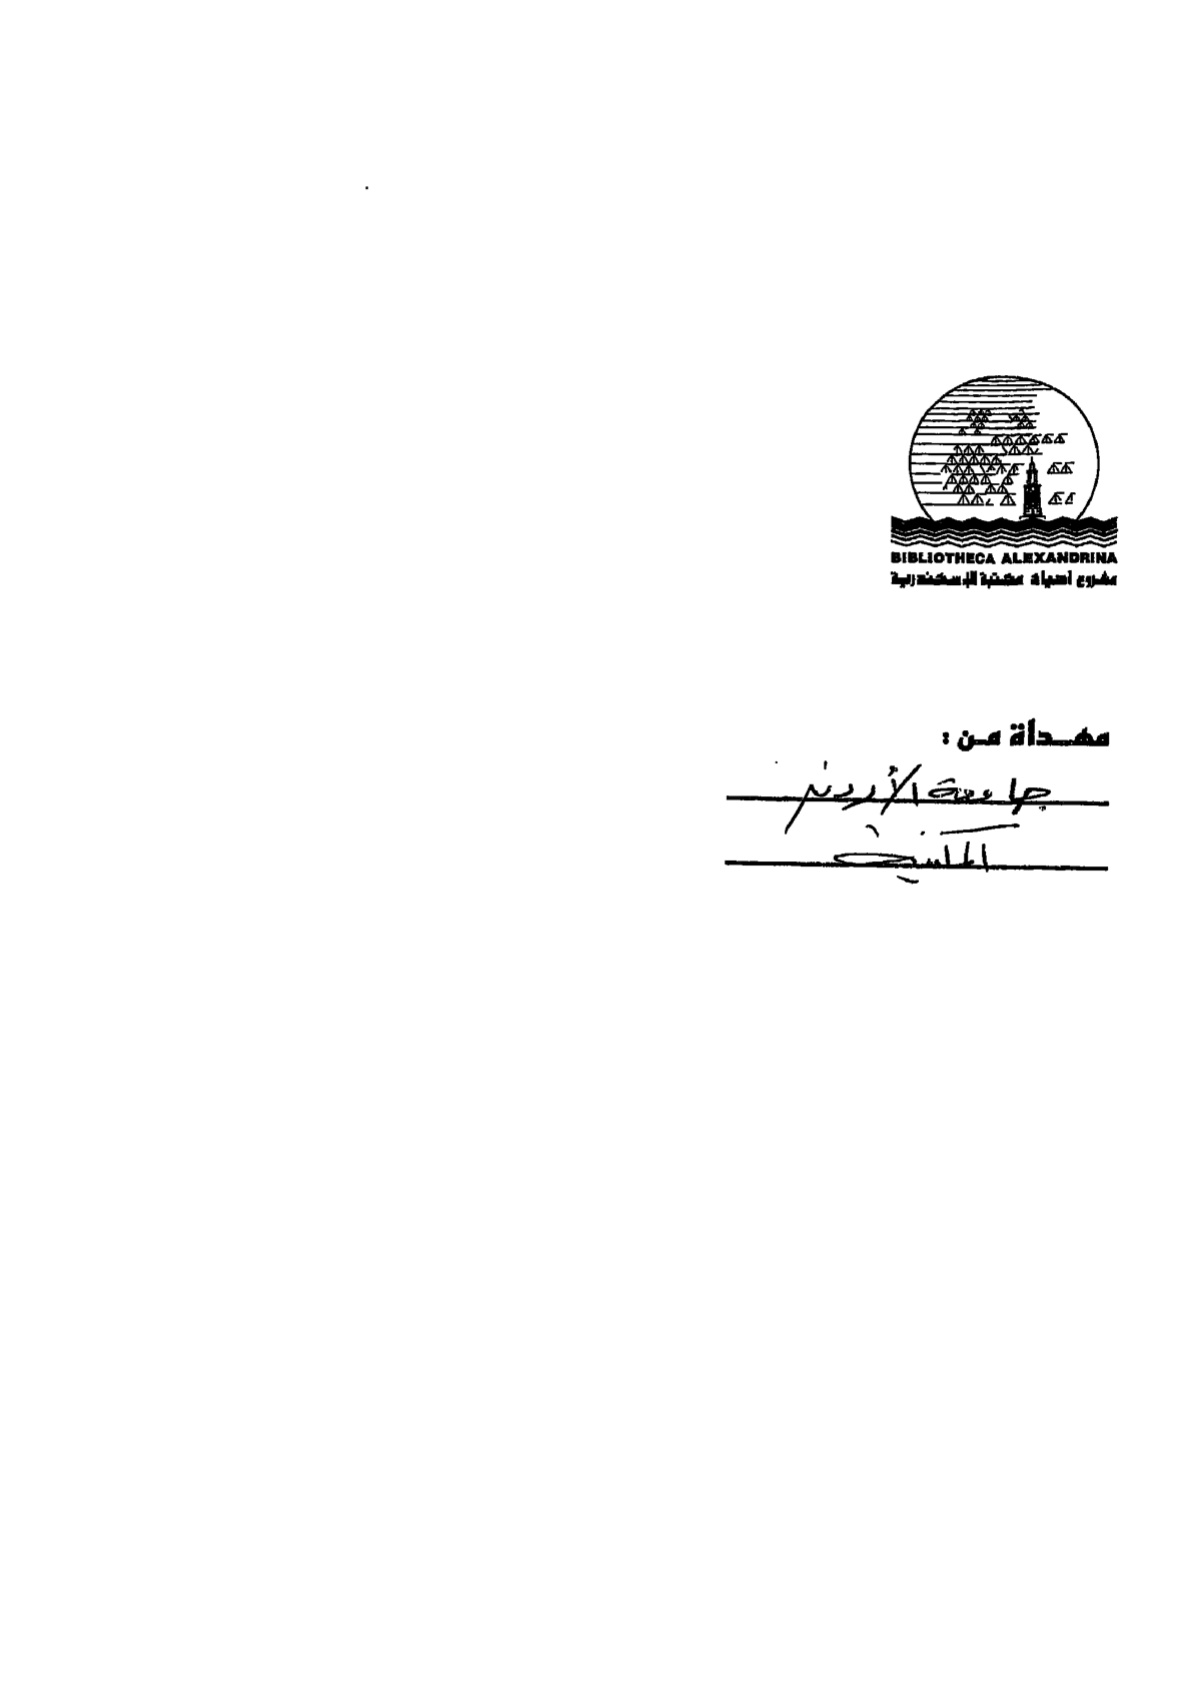 BIBLIOTHECA ALEXANDRINA
مشروع إحياء مكتبة الإسكندرية
مهداة من :
جامعة الأردن